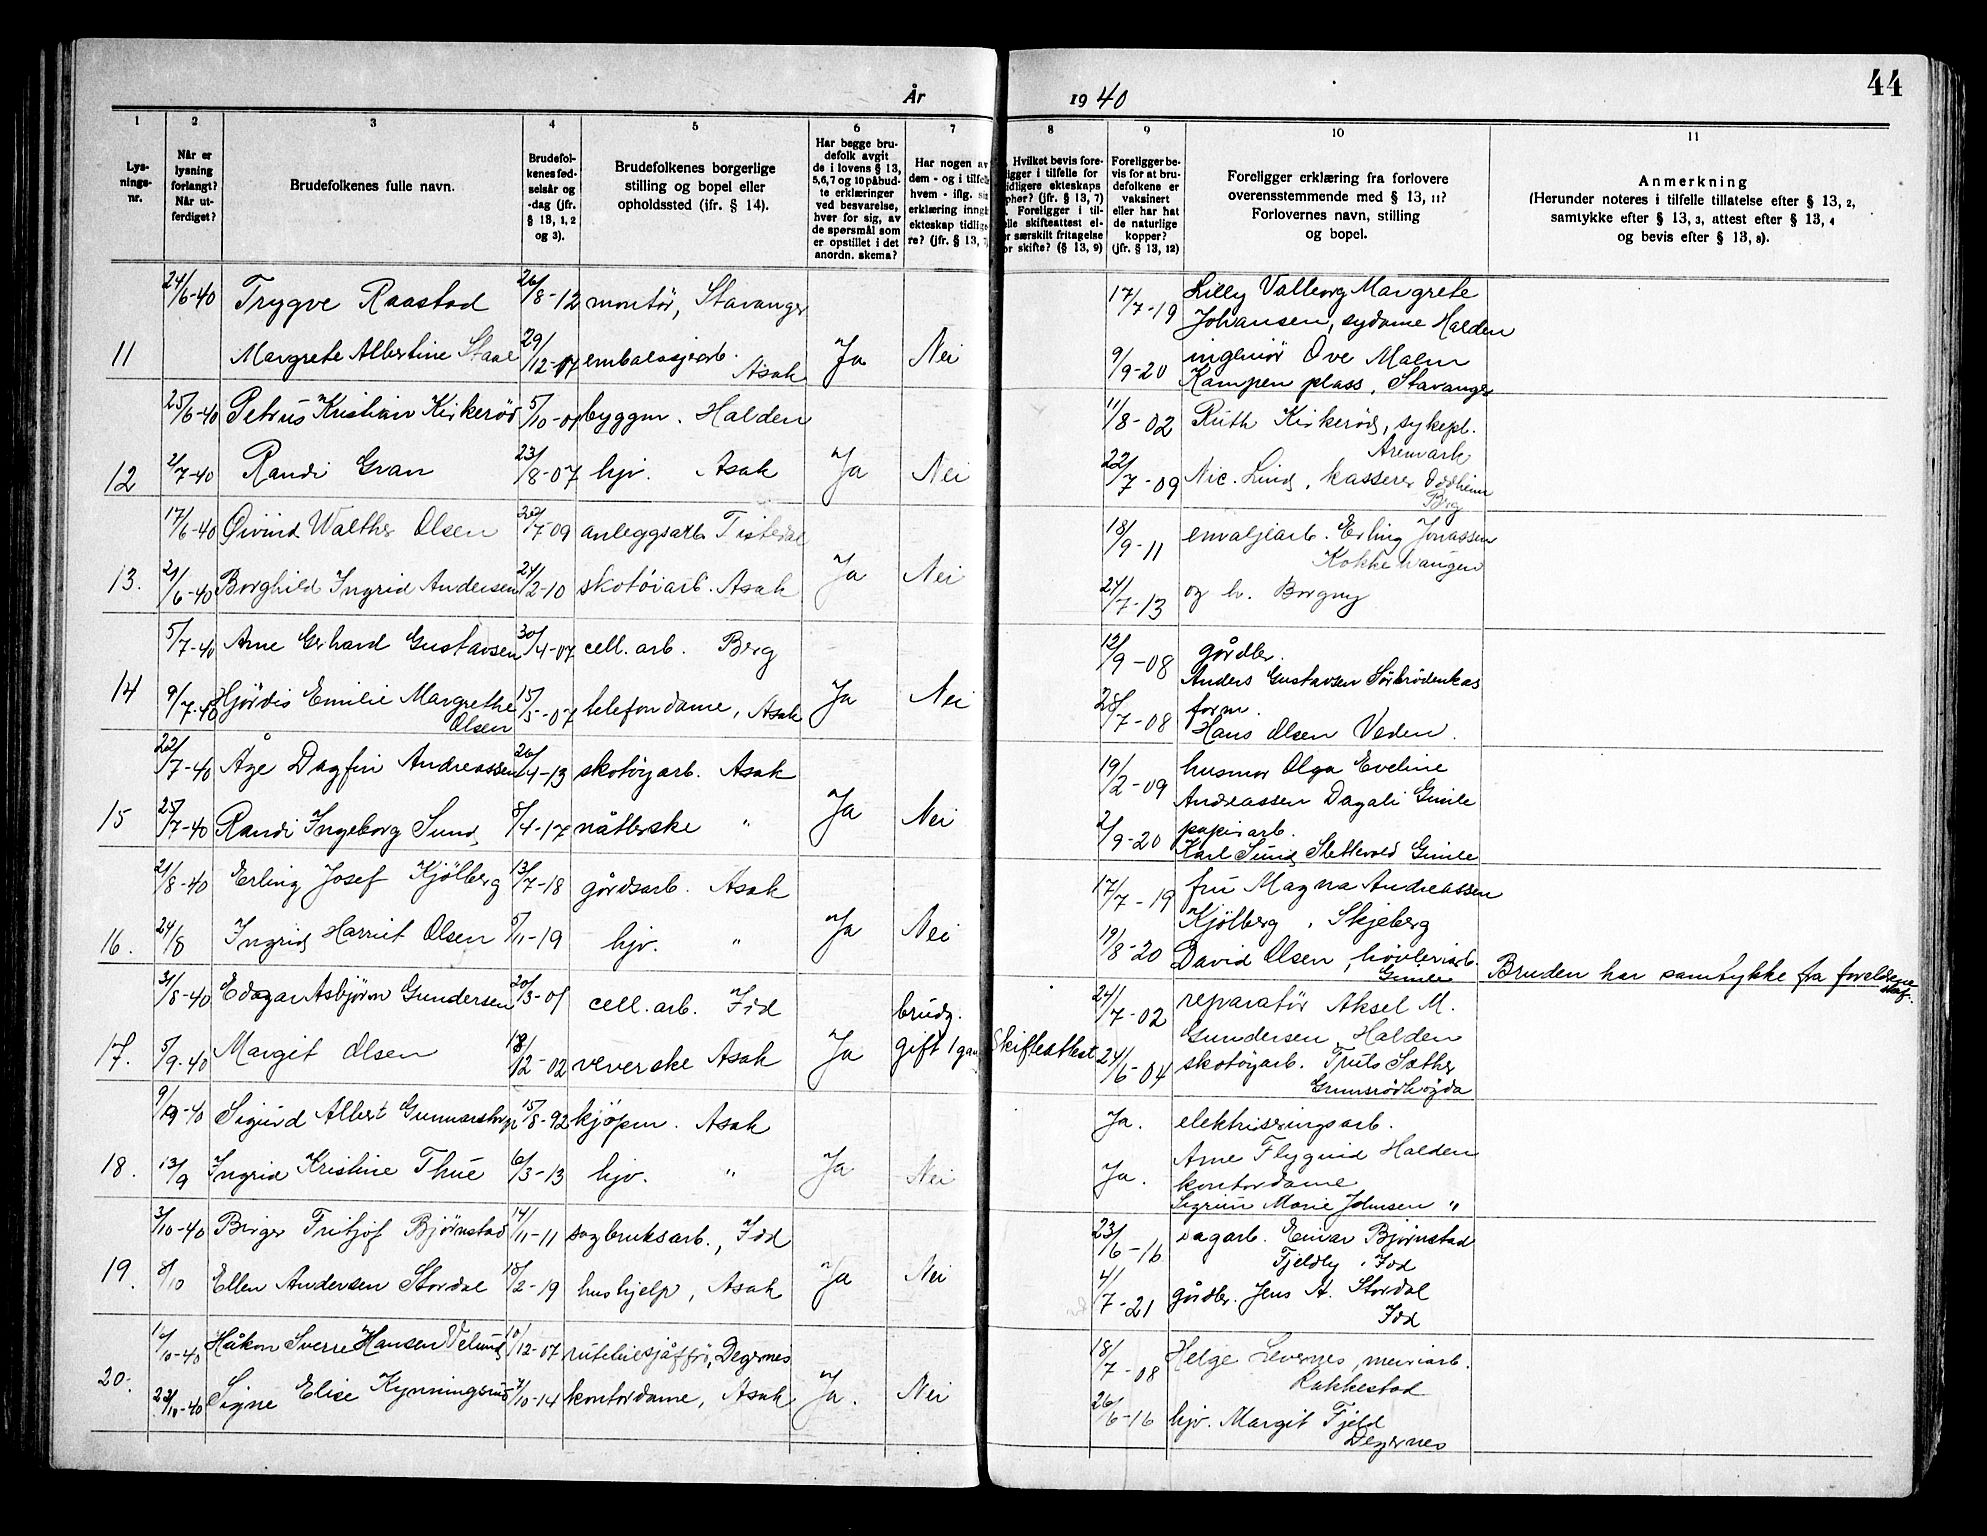 44
År 1940
1 2 3 4 5 6 7 8 9 10 11
Lys-
nings-
nr.
Når er
lysning
forlangt?
Når ut-
ferdiget?
Brudefolkenes fulle navn.
Brudefol-
kenes fød-
selsår og
-dag (jfr.
§ 13, 1, 2
og 3).
Brudefolkenes borgerlige
stilling og bopel eller
opholdssted (ifr. § 14).
Har begge bru-
defolk avgit
de i lovens § 13,
5,6,7 og 10 påbud-
te erklæringer
ved besvarelse,
hver for sig, av
de spørsmål som
er opstillet i det
anordn. skema?
Har nogen av
dem - og i tilfelle
hvem - iflg. si
erklæring inngå
ekteskap tidlige-
re? (jfr. § 13, 7
Hvilket bevis fore-
ligger i tilfelle for
tidligere ekteskaps
ophør? (jfr. § 13, 7)
Foreligger i til-
felle skifteattest el-
er særskilt fritagelse
for skifte? (§ 13, 9)
Foreligger be-
vis for at bru-
defolkene er
vaksinert
eller har hat
de naturlige
kopper?
(jfr. § 13, 12)
Foreligger erklæring fra forlovere
overensstemmende med § 13, 11?
Forlovernes navn, stilling
og bopel.
Anmerkning
(Herunder noteres i tilfelle tillatelse efter § 13, 2,
samtykke efter § 13, 3, attest efter § 13, 4
og bevis efter § 13, 8).
24/6-40 Trygve Raastad 26/8-12 montør, Stavanger 17/7-19 Lilly Valborg Margrete
Johansen, sydame Halden
11 Margrete Albertine Staal 29/12-07 embalasjearb. Asak Ja Nei 9/9-20 ingeniør Ove Malm
Kampen plass, Stavanger
25/6-40 Petrus Kristian Kirkerød 5/10-01 byggm. Halden 11/8-02 Ruth Kirkerød, sykepl.
Aremark
12 2/7-40 Randi Gran 23/8-07 hjv. Asak Ja Nei 22/7-09 Nic. Lind, kasserer Oddheim
Berg
17/6-40 Øivind Walther Olsen /7-09 anleggsarb. Tistedal 18/9-11 emaljearb. Erling Jonassen
13. 21/6-40 Borghild Ingrid Andersen 24/2-10 skotøiarb. Asak Ja Nei 21/7-13 og h. Borgny
5/7-40 Arne Gerhard Gustavsen 30/4-07 cell. arb. Berg 12/9-08 gårdbr.
Anders Gustavsen Sørbrødenkas
14 9/7-40 Hjördis Emilie Margrethe
Olsen 15/5-07 telefondame, Asak Ja Nei 28/7-08 form.
Hans Olsen Veden.
22/7-40 Åge Dagfin Andreassen 26/4-13 skotøyarb. Asak 19/2-09 husmor Olga Eveline
Andreassen Dagali Gimle
15 25/7-40 Randi Ingeborg Sund, 8/4-17 nåtlerske " Ja Nei 2/9-20 papirarb.
Karl Sund Slettevold Gimle
21/8-40 Erling Josef Kjölberg 13/7-18 gårdsarb. Asak 17/7-19 fru Magna Andreassen
Kjölberg, Skjeberg
16. 24/8 Ingrid Harriet Olsen 5/11-19 hjv. " Ja Nei 19/8-20 David Olsen, høvleriarb.
Gimle Bruden har samtykke fra foreldrene
31/8-40 Edgar Asbjörn Gundersen 20/3-01 cell. arb. Idd brudg. 24/7-02 reparatør Aksel M.
Gundersen, Halden
17. 5/9-40 Margit Olsen 18/12-02 veverske Asak Ja gift 1 gang Skifteattest 24/6-04 skotøyarb. Truls Sæther
Grimsrødhøgda
9/9-40 Sigurd Albert Gunnarstorp 15/8-92 kjøpm. Asak Ja. elektriseringsarb.
Arne Flygind Halden
18. 13/9 Ingrid Kristine Thue 6/3-13 hjv. " Ja Nei Ja. kontordame
Sigrun Marie Johnsen "
3/10-40 Birger Fritjof Bjørnstad 14/11-11 sagbruksarb., Idd 23/6-16 sagarb. Einar Bjørnstad
Fjeldly, Idd
19. 8/10 Ellen Andersen Stordal 18/2-19 hushjelp, Asak Ja Nei 4/7-21 gårdbr. Jens A. Stordal
Idd
/10-40 Håkon Sverre Hansen Velund 10/12-07 rutebilsjåffør, Degernes 18/7-08 Helge Levernes, meieriarb.
Rakkestad
20. 22/10-40 Signe Elise Kynningsrud 7/10-14 kontordame, Asak Ja. Nei 26/6-16 hjv. Margit Fjeld
Degernes